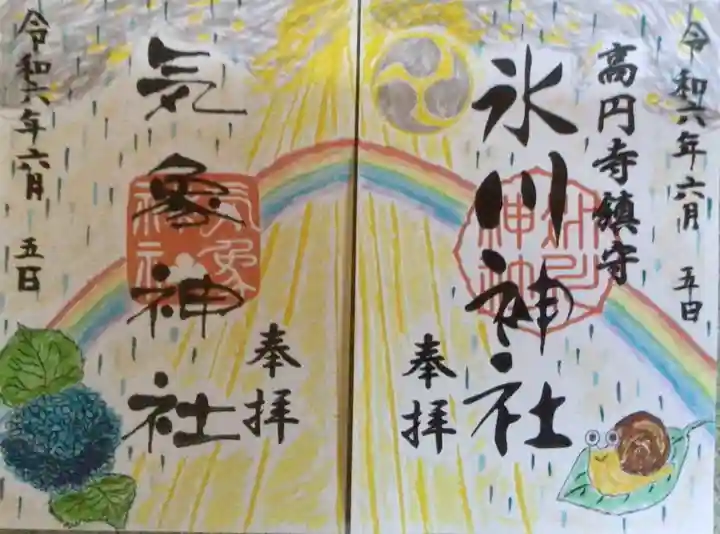 令和六年六月 五日
高円寺鎮守
氷川神社
奉拝
氷川神社
奉拝
気象神社
気象神社
令和六年六月 五日